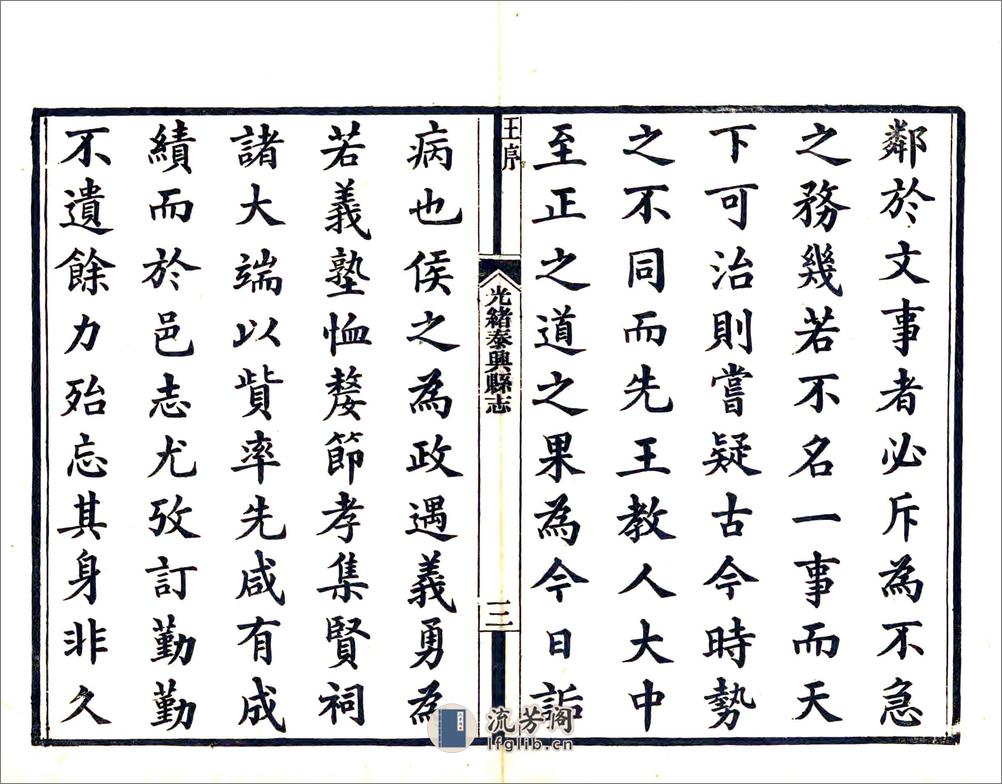 鄰於文事者必斥為不急
之務幾若不名一事而天
下可治則嘗疑古今時勢
之不同而先王教人大中
至正之道之果為今日詬
王序
光緒泰興縣志
三
病也侯之為政遇義勇為
若義塾恤嫠節孝集賢祠
諸大端以貲率先咸有成
績而於邑志尤攷訂勤勤
不遺餘力殆忘其身非久
流芳阁
lfglib.cn